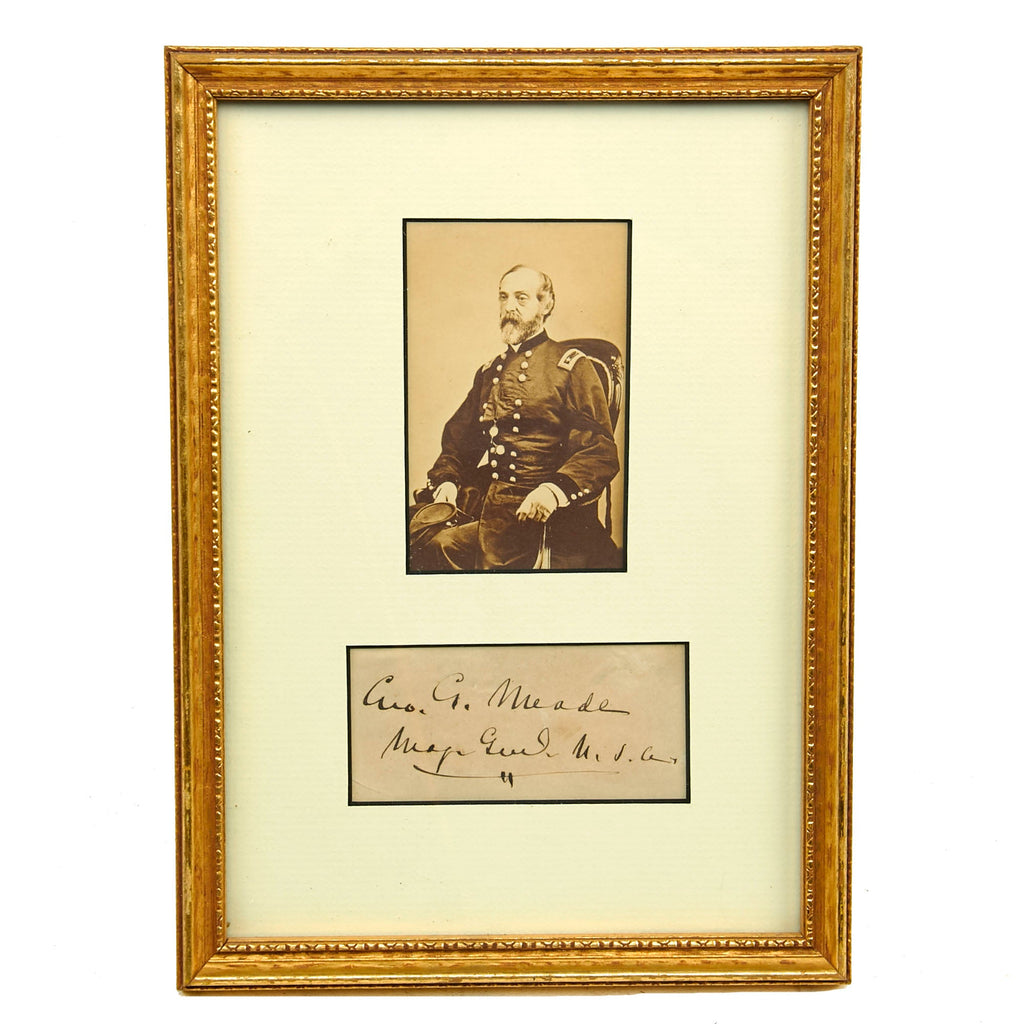 Geo. G. Meade
Maj. Genl. U.S.A.